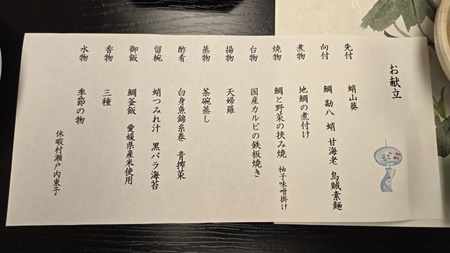 お献立
先付 蛸山葵
向付 鯛 勘八 蛸 甘海老 烏賊素麺
煮物 地鯛の煮付け
焼物 鯛と野菜の挟み焼 柚子味噌掛け
台物 国産カルビの鉄板焼き
揚物 天婦羅
蒸物 茶碗蒸し
酢肴 白身魚錦糸巻 青搾菜
留椀 蛸つみれ汁 黒バラ海苔
御飯 鯛釜飯 愛媛県産米使用
香物 三種
水物 季節の物
休暇村瀬戸内東予